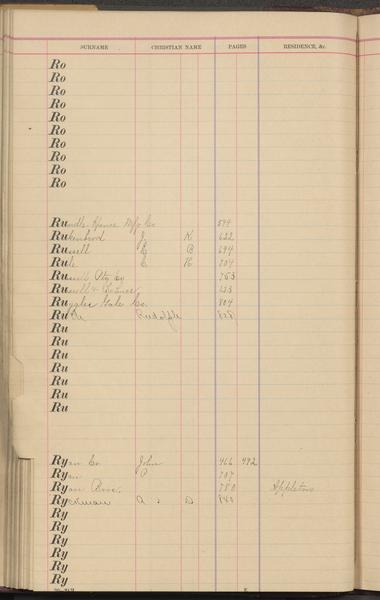 SURNAME CHRISTIAN NAME PAGES RESIDENCE, &c.
Ro
Ro
Ro
Ro
Ro
Ro
Ro
Ro
Ro
Ro
Rundle Mfg Co
Rukenbrod J K 622
Russell C B 694
Rule C H 704
Ru Co 753
Russell &
Ruggles Gale Co. 804
Ru Rudolph 828
Ru
Ru
Ru
Ru
Ru
Ru
Ru
Ryan Co John 466 492
Ryan P 707
Ryan Bros. 780 Appleton
Ryckman A D 840
Ry
Ry
Ry
Ry
Ry
Ry